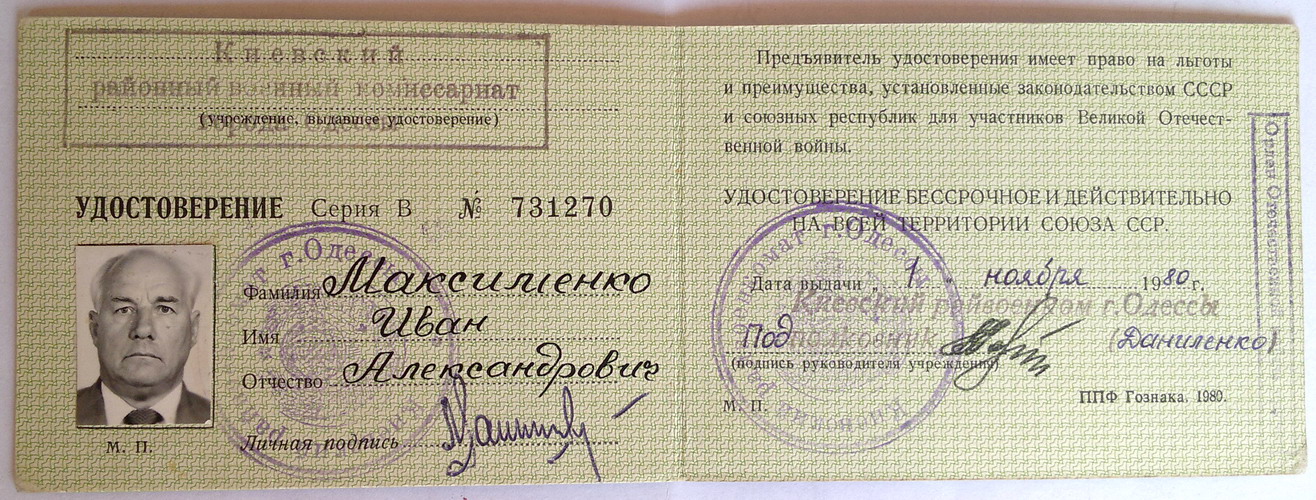 Киевский
районный военный комиссариат
(учреждение, выдавшее удостоверение)
города Одессы
УДОСТОВЕРЕНИЕ Серия В № 731270
г. Одессы
Фамилия Максименко
Имя Иван
Отчество Александрович
М. П.
Личная подпись
Предъявитель удостоверения имеет право на льготы
и преимущества, установленные законодательством СССР
и союзных республик для участников Великой Отечест-
венной войны.
УДОСТОВЕРЕНИЕ БЕССРОЧНОЕ И ДЕЙСТВИТЕЛЬНО
НА ВСЕЙ ТЕРРИТОРИИ СОЮЗА ССР.
Дата выдачи „ 1 " ноября 1980 г.
Киевский райвоенком г. Одессы
Подполковник (Даниленко)
(подпись руководителя учреждения)
М. П.
ППФ Гознака. 1980.
военкомат г. Одессы
Орден Отечественной